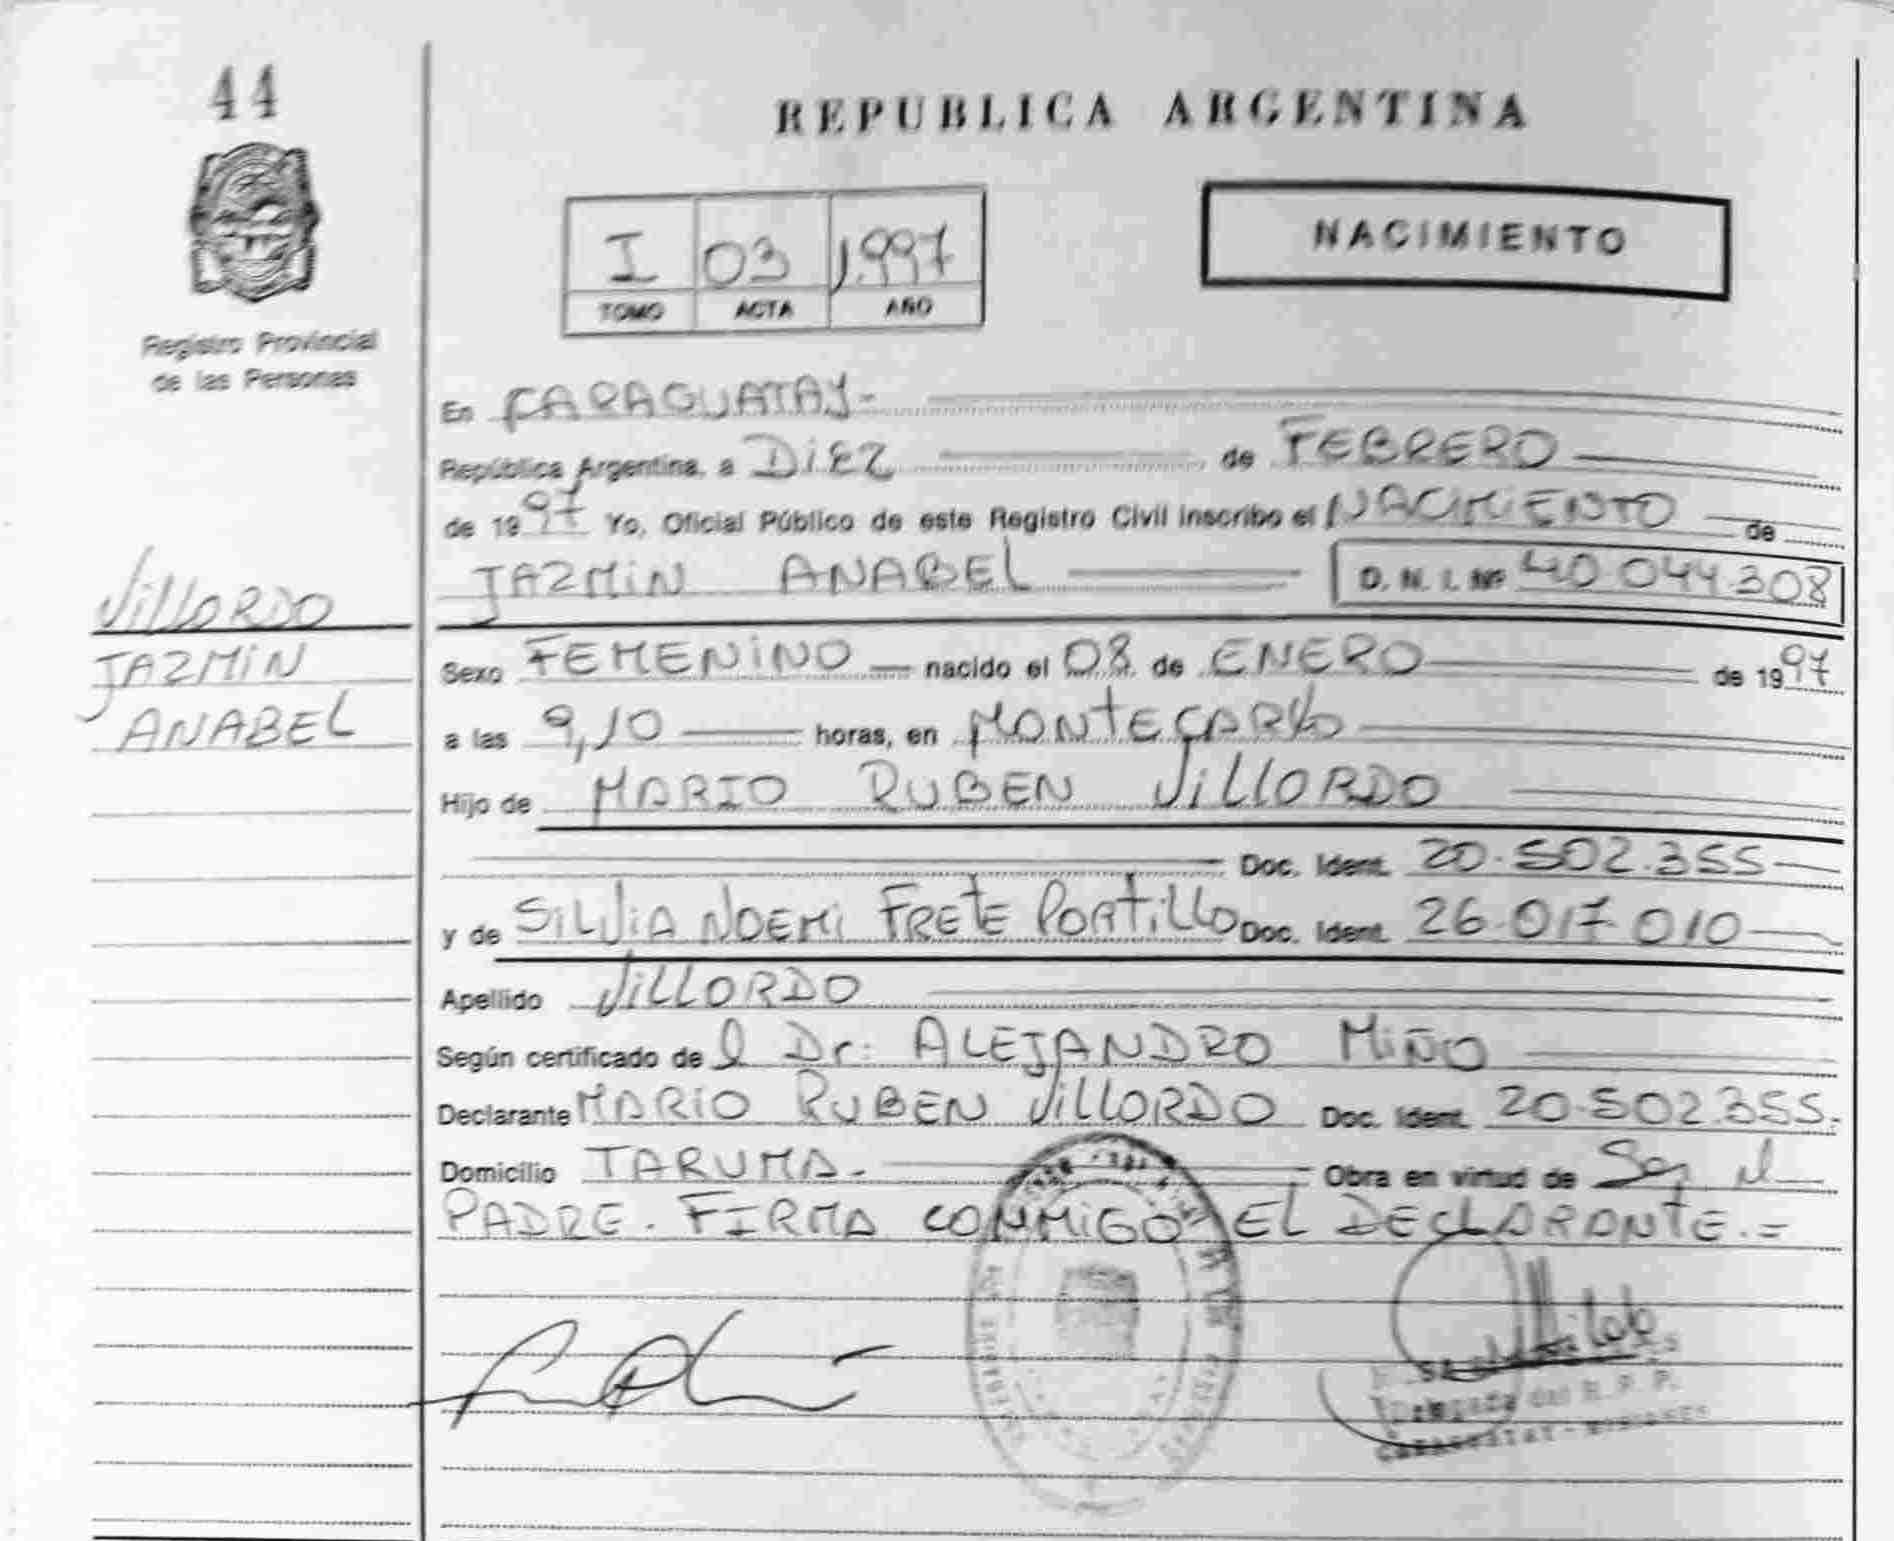 44
REPUBLICA ARGENTINA
I 03 1.997
TOMO ACTA AÑO
NACIMIENTO
Registro Provincial
de las Personas
En CARAGUATAY.-
República Argentina, a DiEZ de FEBRERO
de 1997 Yo, Oficial Público de este Registro Civil inscribo el NACIMIENTO de
JAZMiN ANABEL D. N. I. Nº 40.044.308
VillORDO
JAZMiN
ANABEL
Sexo FEMENiNO nacido el 08 de ENERO de 1997
a las 9,10 horas, en MONTECARlo
Hijo de MARIO RUBEN VillORDO
Doc. Ident. 20.502.355
y de SiLViA NOEMi FRETE PORTiLLO Doc. Ident. 26.017.010
Apellido ViLLORDO
Según certificado del Dr: ALEJANDRO MiÑO
Declarante MARiO RUBEN ViLLORDO Doc. Ident. 20.502.355.
Domicilio TARUMA.- Obra en virtud de Ser el
PADRE. FIRMA CONMiGO EL DECLARANTE.=
Delegada del R. P. P.
CARAGUATAY - MISIONES